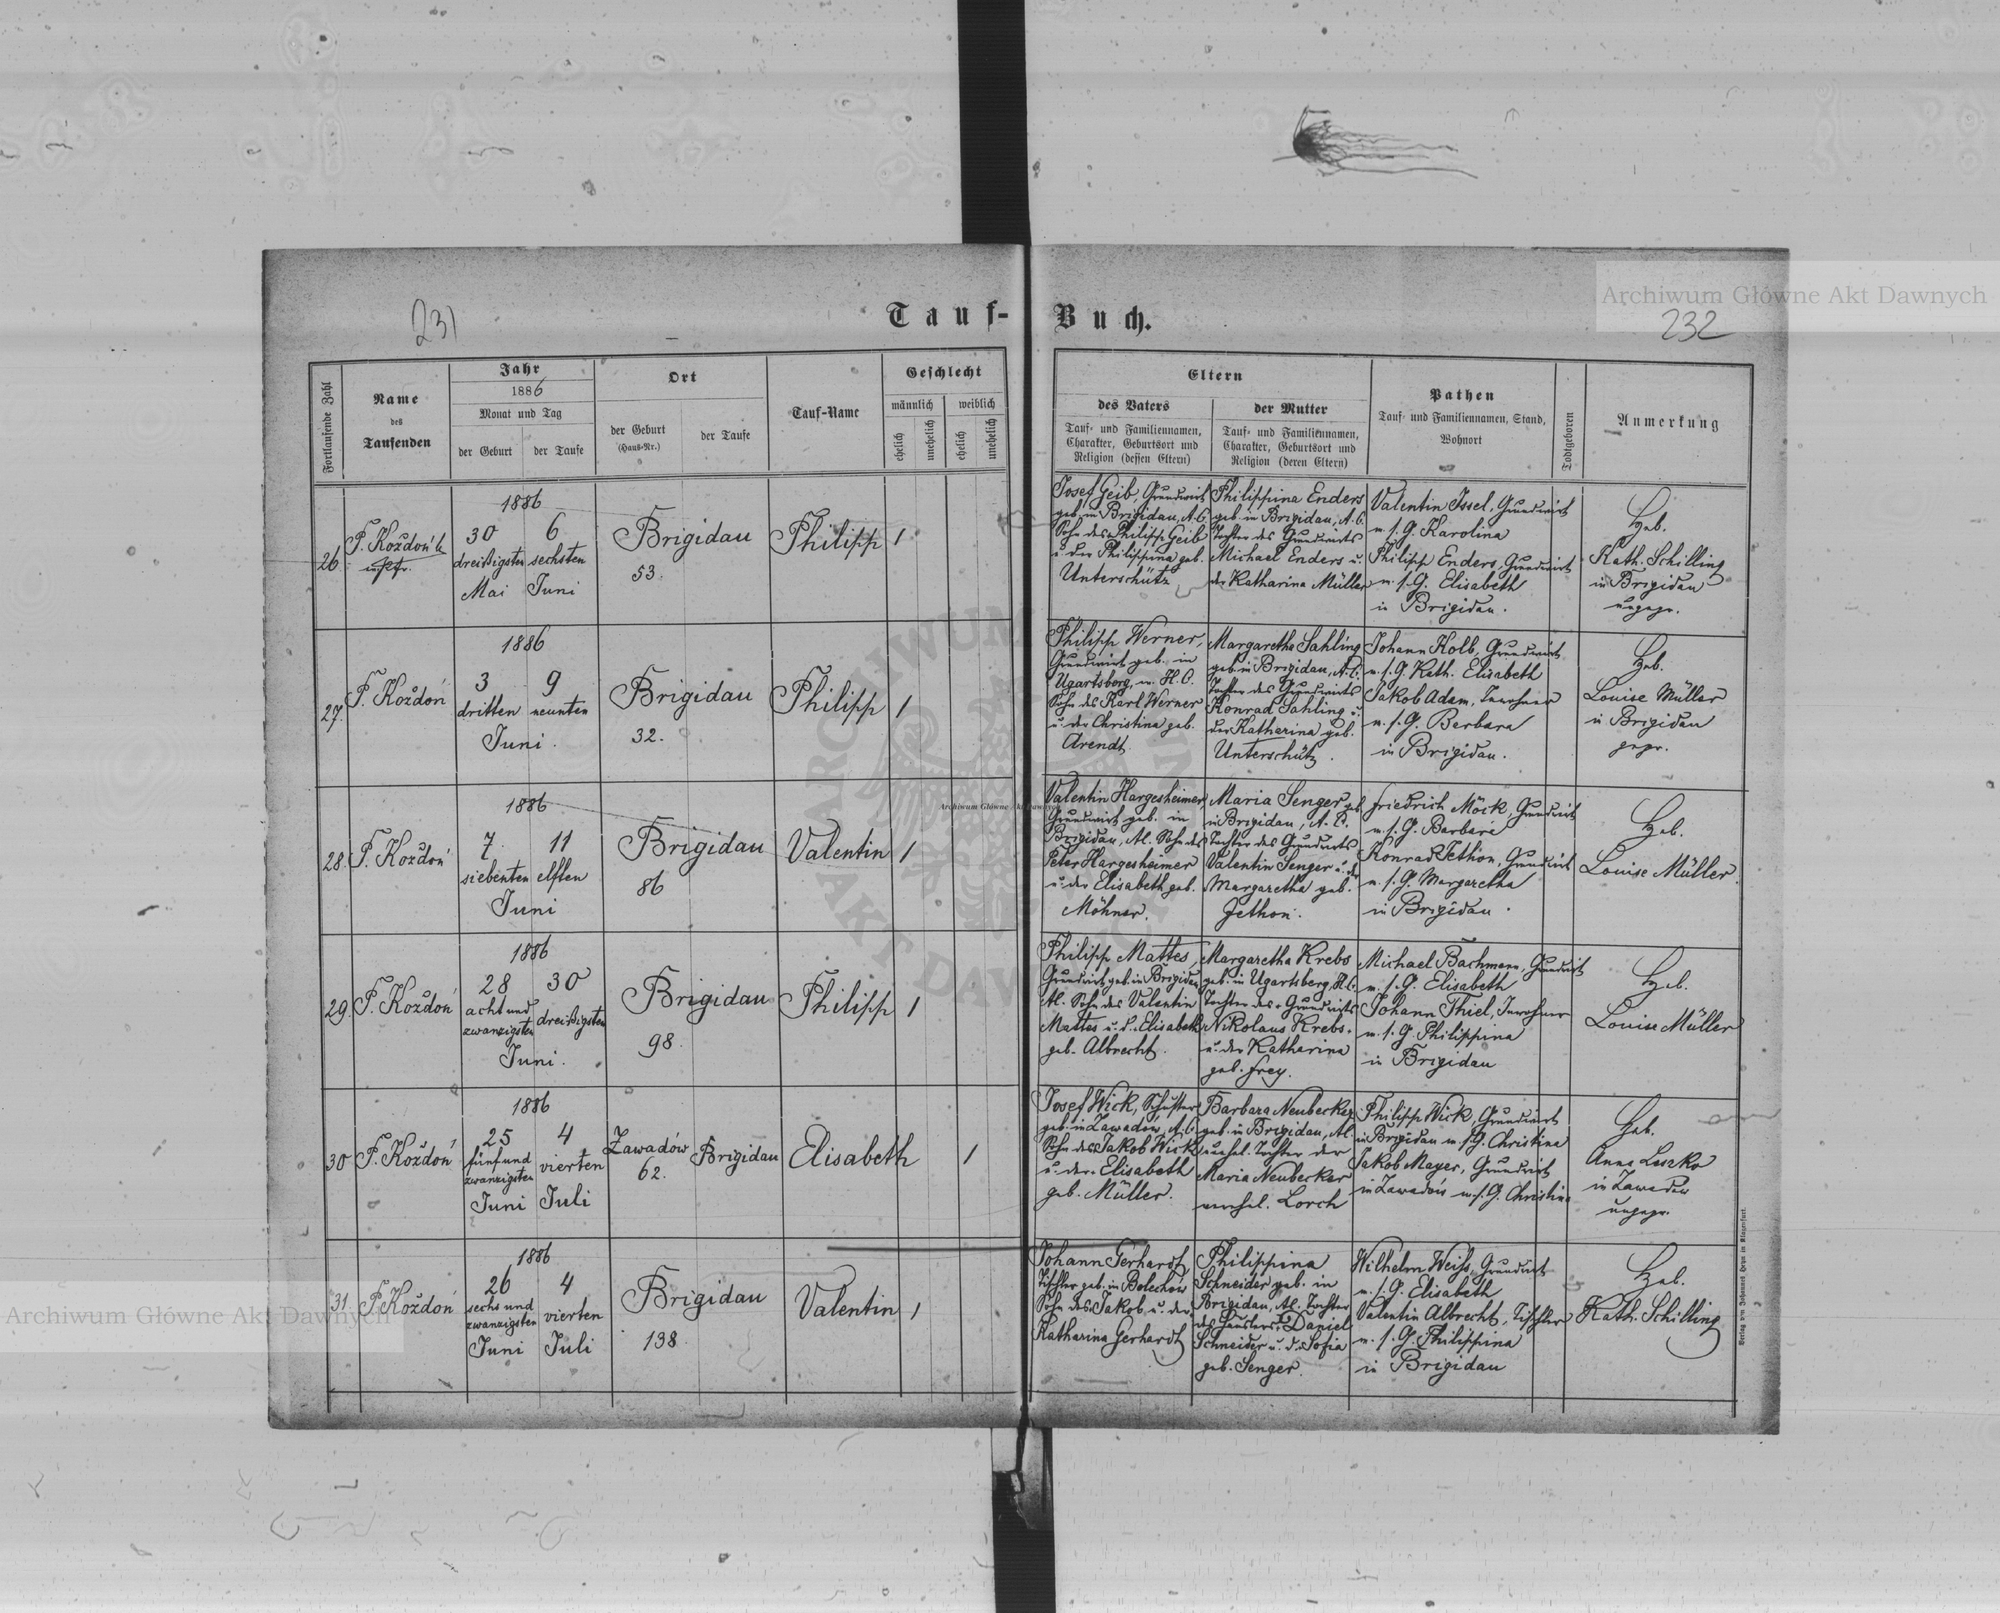 Archiwum Główne Akt Dawnych
231
Tauf-
Buch.
232
Fortlaufende Zahl
Name
des
Taufenden
Jahr
1886
Monat und Tag
der Geburt
der Taufe
Ort
der Geburt
(Haus-Nr.)
der Taufe
Tauf-Name
Geschlecht
männlich
weiblich
ehelich
unehelich
ehelich
unehelich
Eltern
des Vaters
Tauf- und Familiennamen,
Charakter, Geburtsort und
Religion (dessen Eltern)
der Mutter
Tauf- und Familiennamen,
Charakter, Geburtsort und
Religion (deren Eltern)
Pathen
Tauf- und Familiennamen, Stand,
Wohnort
Todtgeboren
Anmerkung
26.
F. Koždoń
1886
30
dreißigsten
Mai
6
sechsten
Juni
Brigidau
53.
Philipp
1
Josef Geib, Grundwirt
geb. in Brigidau, A.C.
Sohn des Philipp Geib
u. der Philippina geb.
Unterschütz
Philippina Enders
geb. in Brigidau, A.C.
Tochter des Grundwirts
Michael Enders u.
der Katharina Müller
Valentin Issel, Grundwirt
m. s. G. Karolina
Philipp Enders, Grundwirt
m. s. G. Elisabeth
in Brigidau.
Heb.
Kath. Schilling
in Brigidau
ungepr.
27.
F. Koždoń
1886
3
dritten
Juni.
9
neunten
Brigidau
32.
Philipp
1
Philipp Werner,
Grundwirt geb. in
Ugartsberg, H.C.
Sohn des Karl Werner
u. der Christina geb.
Arendt
Margaretha Sahling
geb. in Brigidau, A.C.
Tochter des Grundwirts
Konrad Sahling u.
der Katharina geb.
Unterschütz.
Johann Kolb, Grundwirt
m. s. G. Kath. Elisabeth
Jakob Adam, Inwohner
m. s. G. Berbara
in Brigidau.
Heb.
Louise Müller
in Brigidau
gepr.
28.
F. Koždoń
1886
7.
siebenten
Juni
11
elften
Brigidau
86
Valentin
1
Valentin Hargesheimer,
Grundwirt geb. in
Brigidau, A.C. Sohn des
Peter Hargesheimer
u. der Elisabeth geb.
Möhner.
Maria Senger geb.
in Brigidau, A.C.
Tochter des Grundwirts
Valentin Senger u. der
Margaretha geb.
Jethon.
Friedrich Möck, Grundwirt
m. s. G. Barbara
Konrad Jethon, Grundwirt
m. s. G. Margaretha
in Brigidau.
Heb.
Louise Müller.
29.
F. Koždoń
1886
28
acht und
zwanzigsten
Juni.
30
dreißigsten
Brigidau
98.
Philipp
1
Philipp Mattes,
Grundwirt geb. in Brigidau
A.C. Sohn des Valentin
Mattes u. d. Elisabeth
geb. Albrecht.
Margaretha Krebs
geb. in Ugartsberg, A.C.
Tochter des Grundwirts
Nikolaus Krebs
u. der Katharina
geb. Frey.
Michael Bachmann, Grundwirt
m. s. G. Elisabeth
Johann Thiel, Inwohner
m. s. G. Philippina
in Brigidau
Heb.
Louise Müller
30
F. Koždoń
1886
25
fünf und
zwanzigsten
Juni
4
vierten
Juli
Zawadów
62.
Brigidau
Elisabeth
1
Josef Wick, Schuster
geb. in Zawadów, A.C.
Sohn des Jakob Wick
u. der Elisabeth
geb. Müller.
Barbara Neubecker
geb. in Brigidau, A.C.
unehel. Tochter der
Maria Neubecker
verehel. Lorch
Philipp Wick, Grundwirt
in Brigidau m. s. G. Christina
Jakob Mayer, Grundwirt
in Zawadów m. s. G. Christina
Heb.
Anna Leszko
in Zawadów
ungepr.
31.
F. Koždoń
1886
26
sechs und
zwanzigsten
Juni
4
vierten
Juli
Brigidau
138.
Valentin
1
Johann Gerhardt,
Tischler geb. in Bolechów
Sohn des Jakob u. der
Katharina Gerhardt
Philippina
Schneider geb. in
Brigidau, A.C. Tochter
des Häuslers Daniel
Schneider u. d. Sofia
geb. Senger.
Wilhelm Weiss, Grundwirt
m. s. G. Elisabeth
Valentin Albrecht, Tischler
m. s. G. Philippina
in Brigidau
Heb.
Kath. Schilling
Verlag von Johannes Heyn in Klagenfurt.
Archiwum Główne Akt Dawnych
Archiwum Główne Akt Dawnych